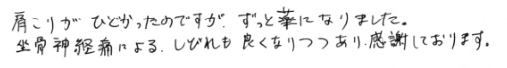 肩こりが ひどかったのですが、ずっと楽になりました。
坐骨神経痛による、しびれも 良くなりつつあり、感謝しております。